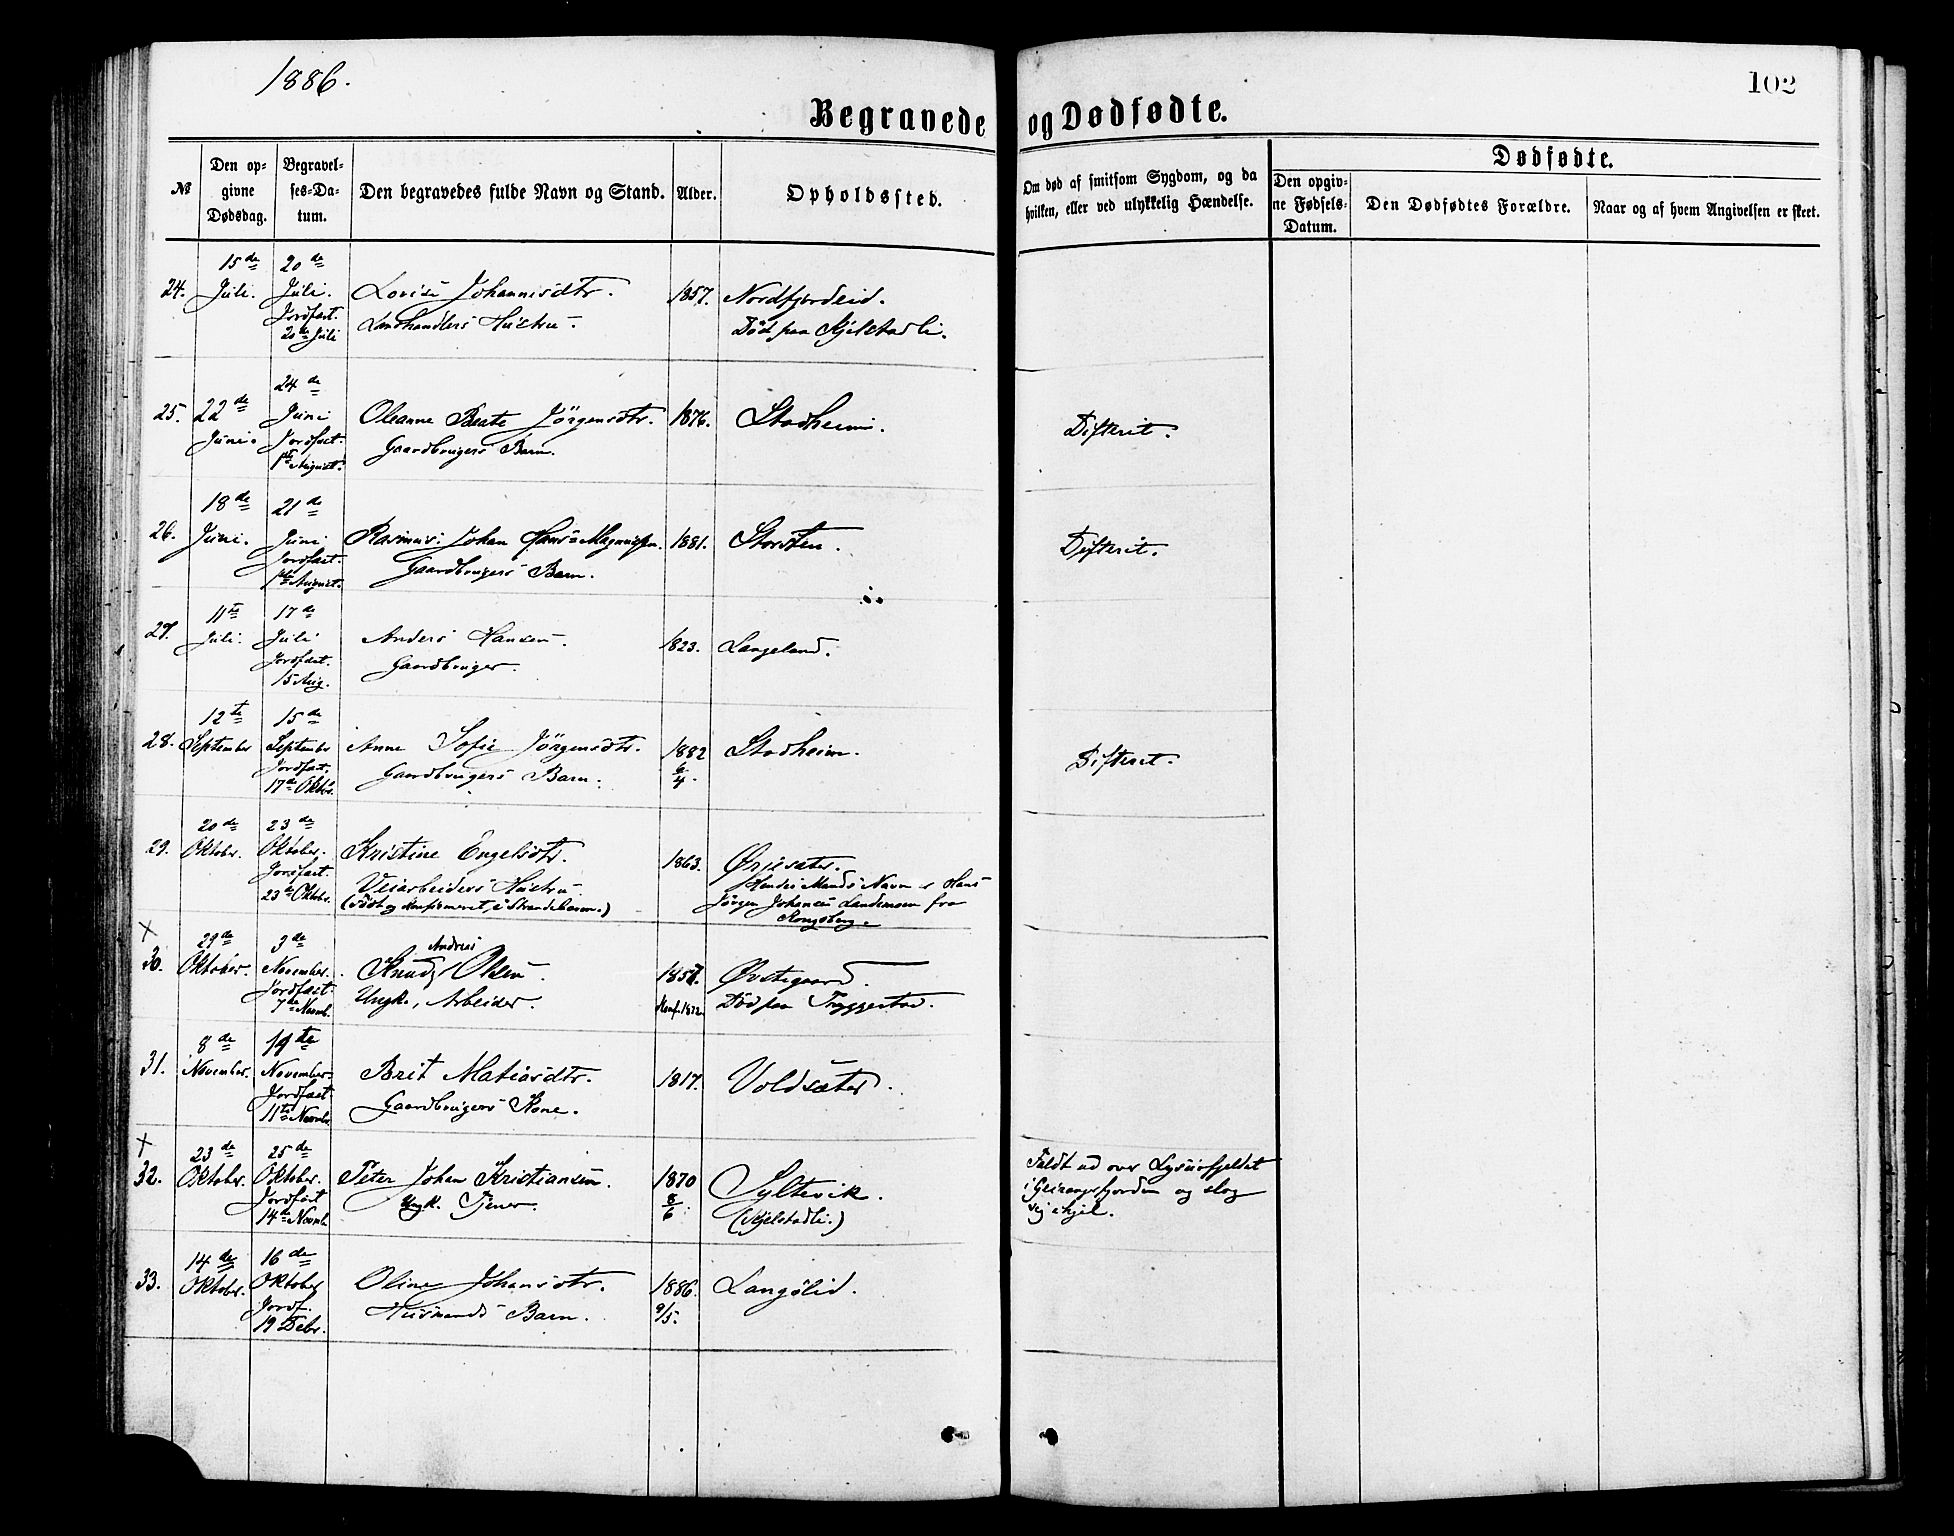 1886.
102
Begravede og Dødfødte.
№
Den opgivne Dødsdag.
Begravelses-Datum.
Den begravedes fulde Navn og Stand.
Alder.
Opholdssted.
Om død af smitsom Sygdom, og da hvilken, eller ved ulykkelig Hændelse.
Dødfødte.
Den opgivne Fødsels-Datum.
Den Dødfødtes Forældre.
Naar og af hvem Angivelsen er skeet.
24. 15de Juli. 20de Juli. Jordfast. 20de Juli
Lovise Johannisdtr. 1857. Nordfjordeid.
Landhandlers Hustru. Død paa Kjelstadli.
25. 22de Juni. 24de Juni Jordfast. 1ste August.
Oleanne Beate Jörgensdtr. 1876. Stadheim. Difterit.
Gaardbrugers Barn.
26. 18de Juni. 21de Juni Jordfast. 1ste August.
Rasmus Johan Hans Magnussen. 1881. Storsten. Difterit.
Gaardbrugers Barn.
27. 11te Juli. 17de Juli Jordfast. 15 Aug.
Anders Hansen. 1823. Langeland.
Gaardbruger.
28. 12te September 15de September Jordfast. 17de Oktbr.
Anne Sofie Jörgensdtr. 1882 6/4. Stadheim. Difterit.
Gaardbrugers Barn.
29. 20de Oktober. 23de Oktober. Jordfast. 23de Oktbr.
Kristine Engelsdtr. 1863. Ørjesæter.
Veiarbeiders Hustru. Hendes Mands Navn er Hans
(Födt og konfirmeret i Strandebarm.) Jörgen Johansen Landemoen fra
Kongsberg.
× 30. 29de Oktober. 3de November. Jordfast. 7de Novmb.
Andreas
Knud Olsen. 1857. Øvstegaard.
Ungk., Arbeider. Konf. 1872. Död paa Tryggestad.
31. 8de November. 19te November. Jordfast 11te Novmbr.
Brit Matiasdtr. 1817. Voldsæter.
Gaardbrugers Kone.
× 32. 23de Oktober. 25de Oktober. Jordfast 14de Novmb.
Peter Johan Kristiansen. 1870 8/6. Syltevik. Faldt ud over Lysurfjeldet
Ungk. Tjener. (Kjelstadli.) i Geirangerfjorden og slog
sig ihjel.
33. 14de Oktober. 16de Oktober Jordf. 19 Debr.
Oline Johansdtr. 1886. 9/5. Langölid.
Husmands Barn.